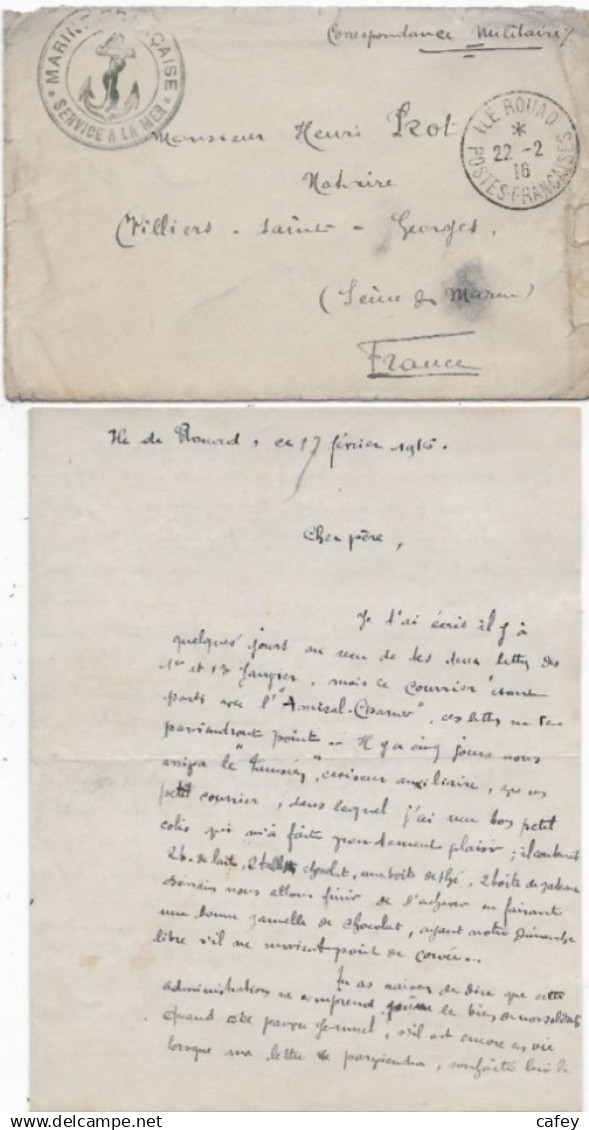 Correspondance Militaire
MARINE FRANÇAISE
* SERVICE A LA MER *
ILE ROUAD
*
22 -2
16
POSTES-FRANÇAISES
Monsieur Henri
Notaire
Villiers - Saint - Georges.
(Seine & Marne)
France
Ile de Rouad, ce 17 février 1916.
Cher père,
Je t'ai écrit il y a
quelques jours au reçu de tes deux lettres des
1er et 13 Janvier, mais le courrier étant
parti avec l'"Amiral-Charner", ces lettres ne te
parviendront point. Il y a cinq jours nous
arriva le " ", croiseur auxiliaire, avec un
petit courrier, dans lequel j'ai reçu bon petit
colis qui m'a fait grandement plaisir; il contenait
2 b. de lait, 2 chocolat, une boîte de thé, 2 boîtes de gateaux
Demain nous allons finir de l'achever en faisant
une bonne gamelle de chocolat, ayant notre Dimanche
libre s'il ne survient point de corvée...
Tu as raison de dire que cette
administration ne comprend le bien de nos soldats
Quand ce pauvre , s'il est encore en vie
lorsque ma lettre te parviendra, souhaite lui le
cafey